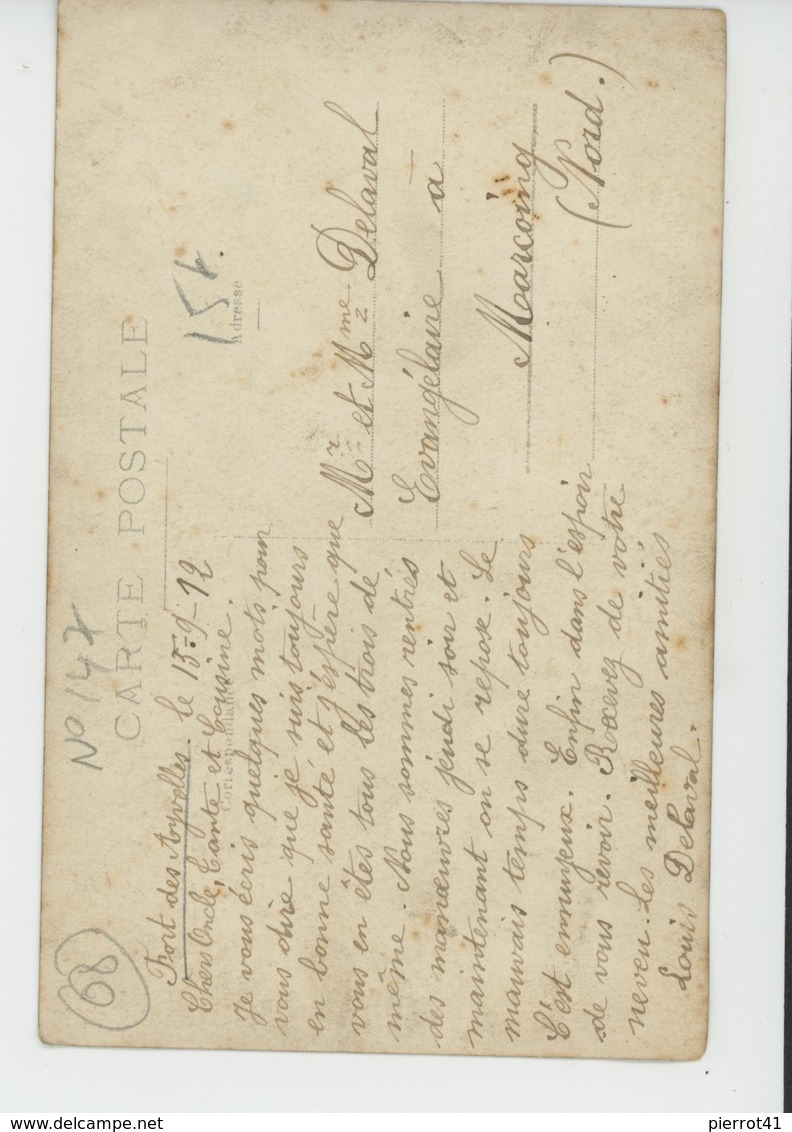 Nº 147
CARTE POSTALE
68
Correspondance
Fort des Ayvelles. le 15-9-12
Chers Oncle, Tante et Cousine.
Je vous écris quelques mots pour
vous dire que je suis toujours
en bonne santé et j'espère que
vous en êtes tous les trois de
même. Nous sommes rentrés
des manœuvres jeudi soir et
maintenant on se repose. Le
mauvais temps dure toujours
C'est ennuyeux. Enfin dans l'espoir
de vous revoir. Recevez de votre
neveu. Les meilleures amitiés
Louis Delaval.
15t.
Adresse
Mr et Mme Delaval
Evangélaire à
Marcoing
(Nord.)
pierrot41